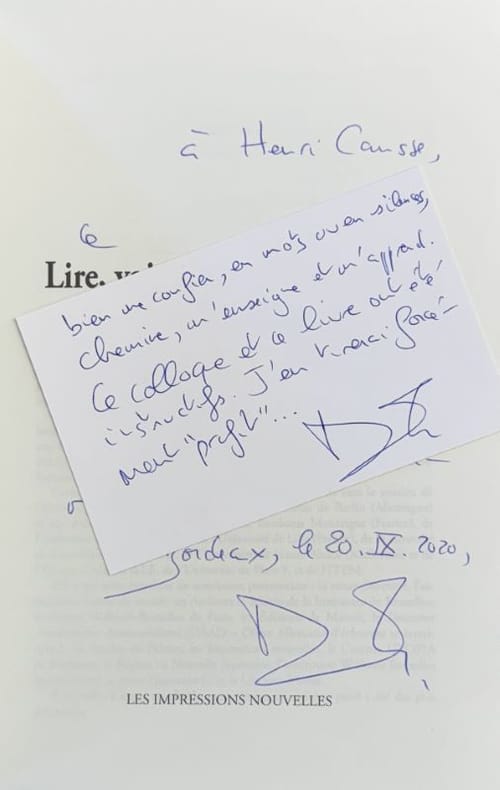 à Henri Causse,
Ce
Lire,
bien me confier, en mots ou en silences,
chemine, m'enseigne et m'apprend.
Ce colloque et ce livre ont été
instructifs. J'en tirerai forcé-
ment "profit"...
Bordeaux, le 20.IX.2020,
LES IMPRESSIONS NOUVELLES